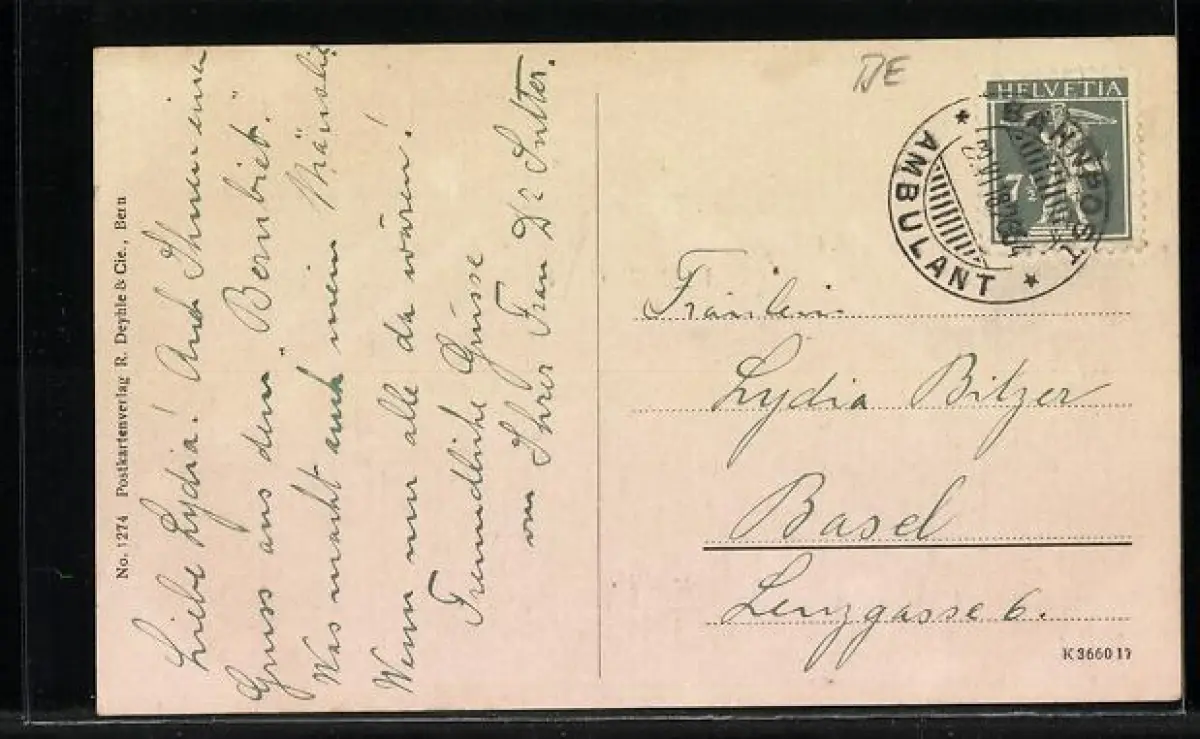 No. 1274 Postkartenverlag R. Deyhle & Cie., Bern
Liebe Lydia! Auch Ihnen einen
Gruss aus dem "Bernbiet".
Was macht auch mein
Wenn nur alle da wären!
Freundliche Grüsse
von Ihrer Frau Dr Sutter.
HELVETIA
7½
BAHNPOST
* AMBULANT *
Fräulein
Lydia Bitzer
Basel
Lenzgasse 6.
K 3660 17